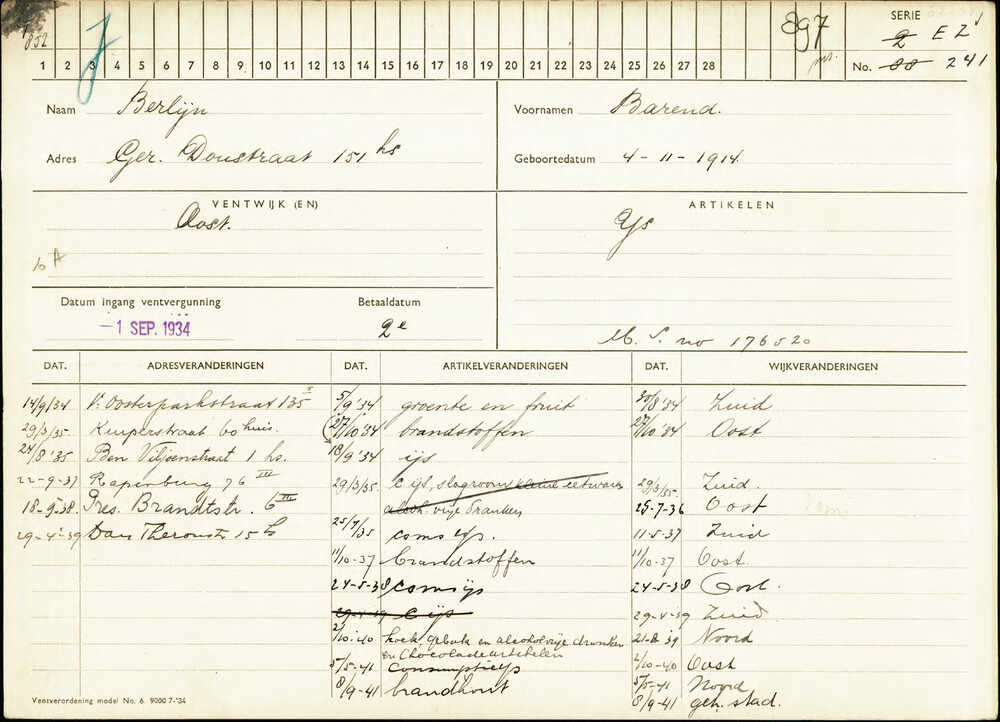 852 J 897 SERIE 2 E Z
1 2 3 4 5 6 7 8 9 10 11 12 13 14 15 16 17 18 19 20 21 22 23 24 25 26 27 28 No. 00 241
Naam Berlijn Voornamen Barend.
Adres Ger. Doustraat 151 hs Geboortedatum 4-11-1914.
VENTWIJK (EN) ARTIKELEN
Oost. Ys
10 A
Datum ingang ventvergunning Betaaldatum
-1 SEP. 1934 2e
M.S. no 176520
DAT. ADRESVERANDERINGEN DAT. ARTIKELVERANDERINGEN DAT. WIJKVERANDERINGEN
14/9/34 v. Oosterparkstraat 135 I 5/9 '34 groente en fruit 30/8 '34 Zuid
29/3/35. Kuiperstraat 60 huis. 27/10 '34 brandstoffen 27/10 '34 Oost
24/8 '35 Ben Viljoenstraat 1 hs. 18/9 '34 ijs
22-9-37 Rapenburg 76 III 29/3/35. C ijs, slagroom, kleine eetwaren 29/3/35. Zuid.
18-9-38. Pres. Brandtstr. 6 III alcoh. vrije dranken 25-7-36 Oost
29-4-39 Dan Theronstr 15 h 25/7/35 cons ijs. 11-5-37 Zuid
11/10-37 brandstoffen 11/10-37 Oost.
24-5-38 consijs 24-5-38 Oost.
29-4-39 C ijs 29-4-39 Zuid.
2/10-40 koek, gebak en alcoholvrije dranken 21-8-39 Noord
en Chocoladeartikelen 2/10-40 Oost
5/5-41 consumptieijs 5/5-41 Noord
8/9-41 brandhout 8/9-41 geh. stad.
Ventverordening model No. 6. 9000 7-'34